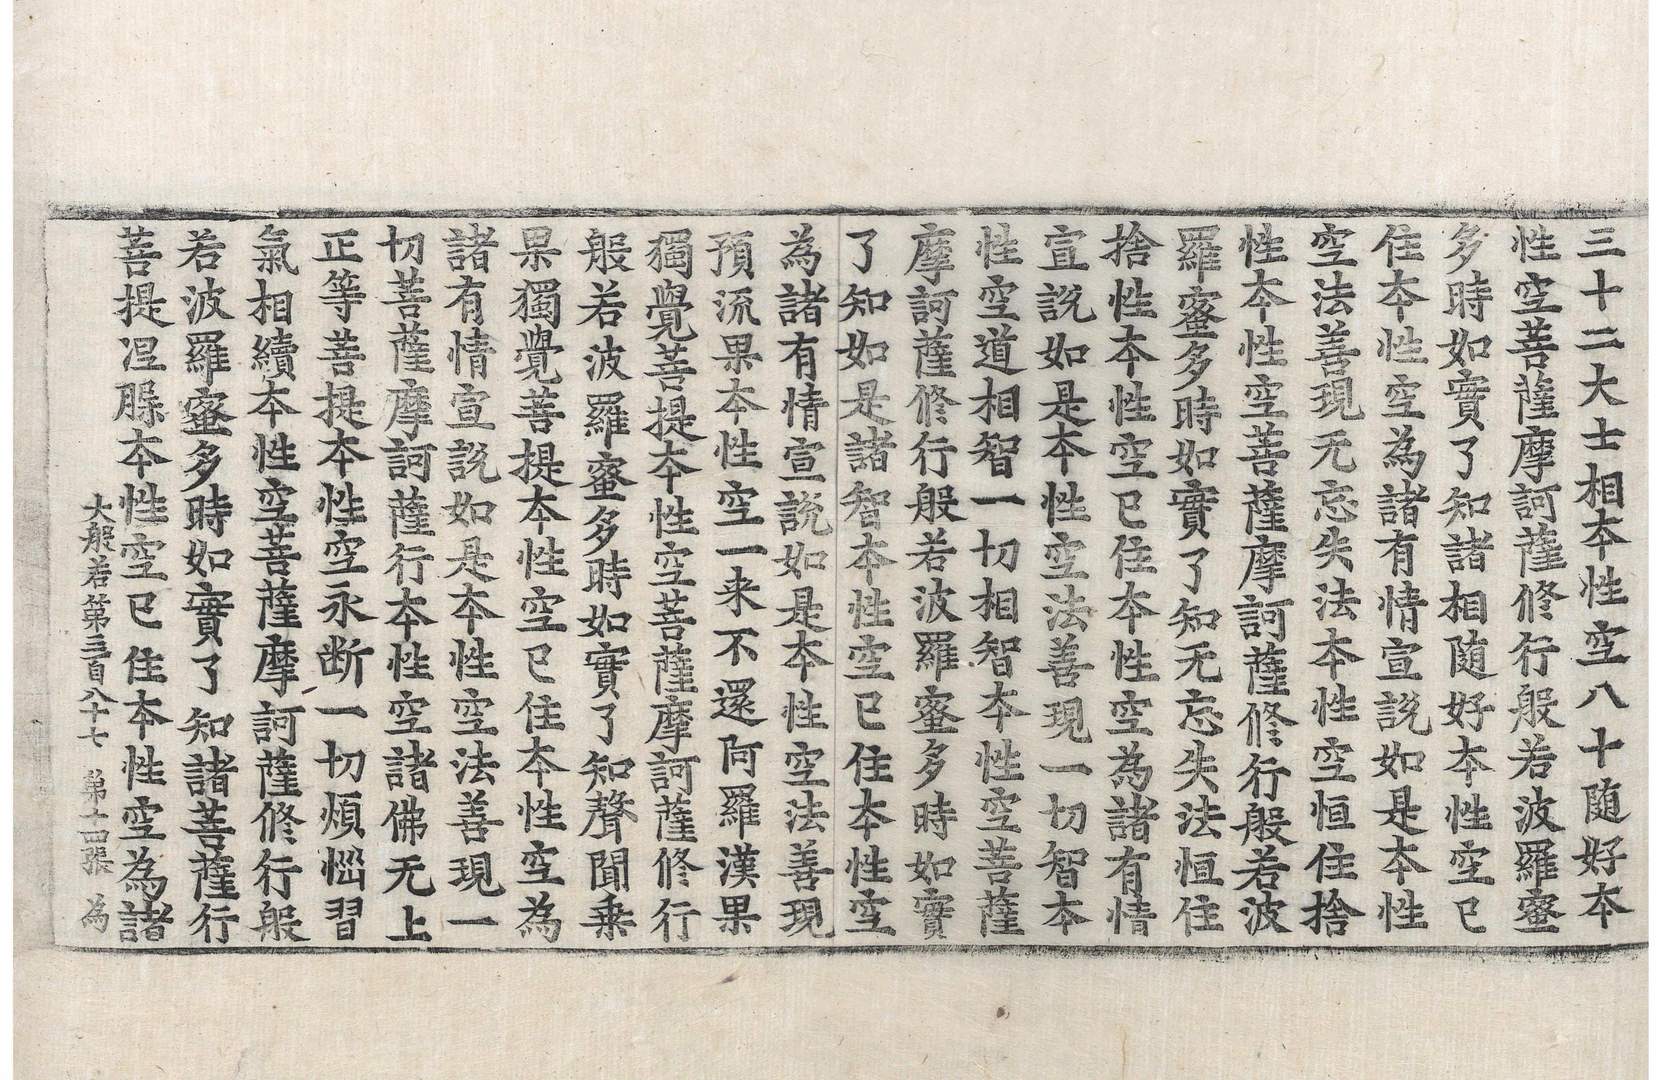 三十二大士相本性空八十随好本
性空菩薩摩訶薩修行般若波羅蜜
多時如實了知諸相随好本性空已
住本性空為諸有情宣説如是本性
空法善現无忘失法本性空恒住捨
性本性空菩薩摩訶薩修行般若波
羅蜜多時如實了知无忘失法恒住
捨性本性空已住本性空為諸有情
宣説如是本性空法善現一切智本
性空道相智一切相智本性空菩薩
摩訶薩修行般若波羅蜜多時如實
了知如是諸智本性空已住本性空
為諸有情宣説如是本性空法善現
預流果本性空一来不還阿羅漢果
獨覺菩提本性空菩薩摩訶薩修行
般若波羅蜜多時如實了知聲聞乗
果獨覺菩提本性空已住本性空為
諸有情宣説如是本性空法善現一
切菩薩摩訶薩行本性空諸佛无上
正等菩提本性空永断一切煩惱習
氣相續本性空菩薩摩訶薩修行般
若波羅蜜多時如實了知諸菩薩行
菩提涅槃本性空已住本性空為諸
大般若第三百八十七 第十四張 為